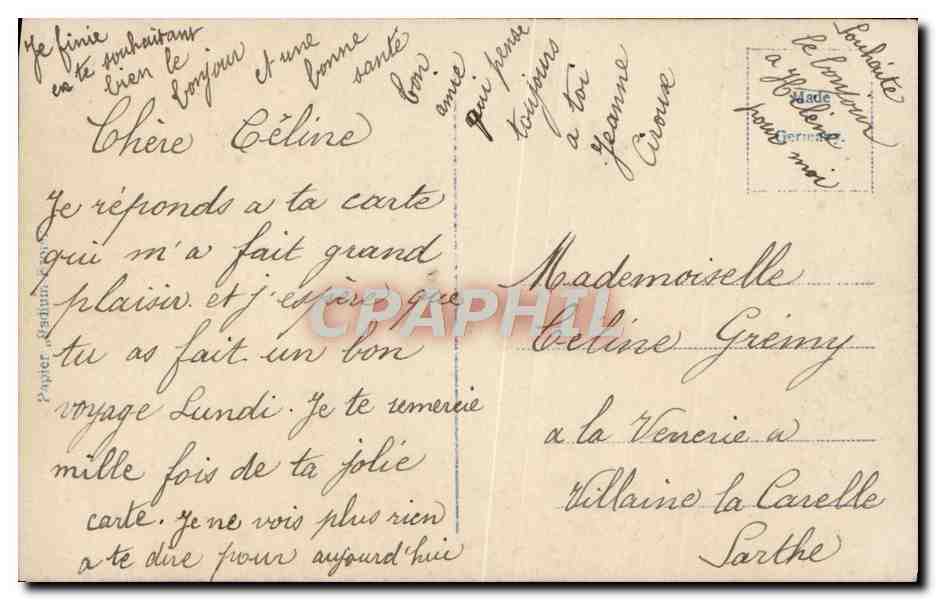 Chère Céline
Je réponds a ta carte
qui m'a fait grand
plaisir et j'espère que
tu as fait un bon
voyage Lundi. Je te remercie
mille fois de ta jolie
carte. Je ne vois plus rien
a te dire pour aujourd'hui
Je finie
en te souhaitant
bien le
bonjour
et une
bonne
santé
bon
amie
qui pense
toujours
a toi
Jeanne
Ciroux
Souhaite
le bonjour
a Hélène
pour moi
Made
Germany.
Mademoiselle
Céline Grémy
a la Venerie a
Villaine la Carelle
Sarthe
Papier
CPAPHIL